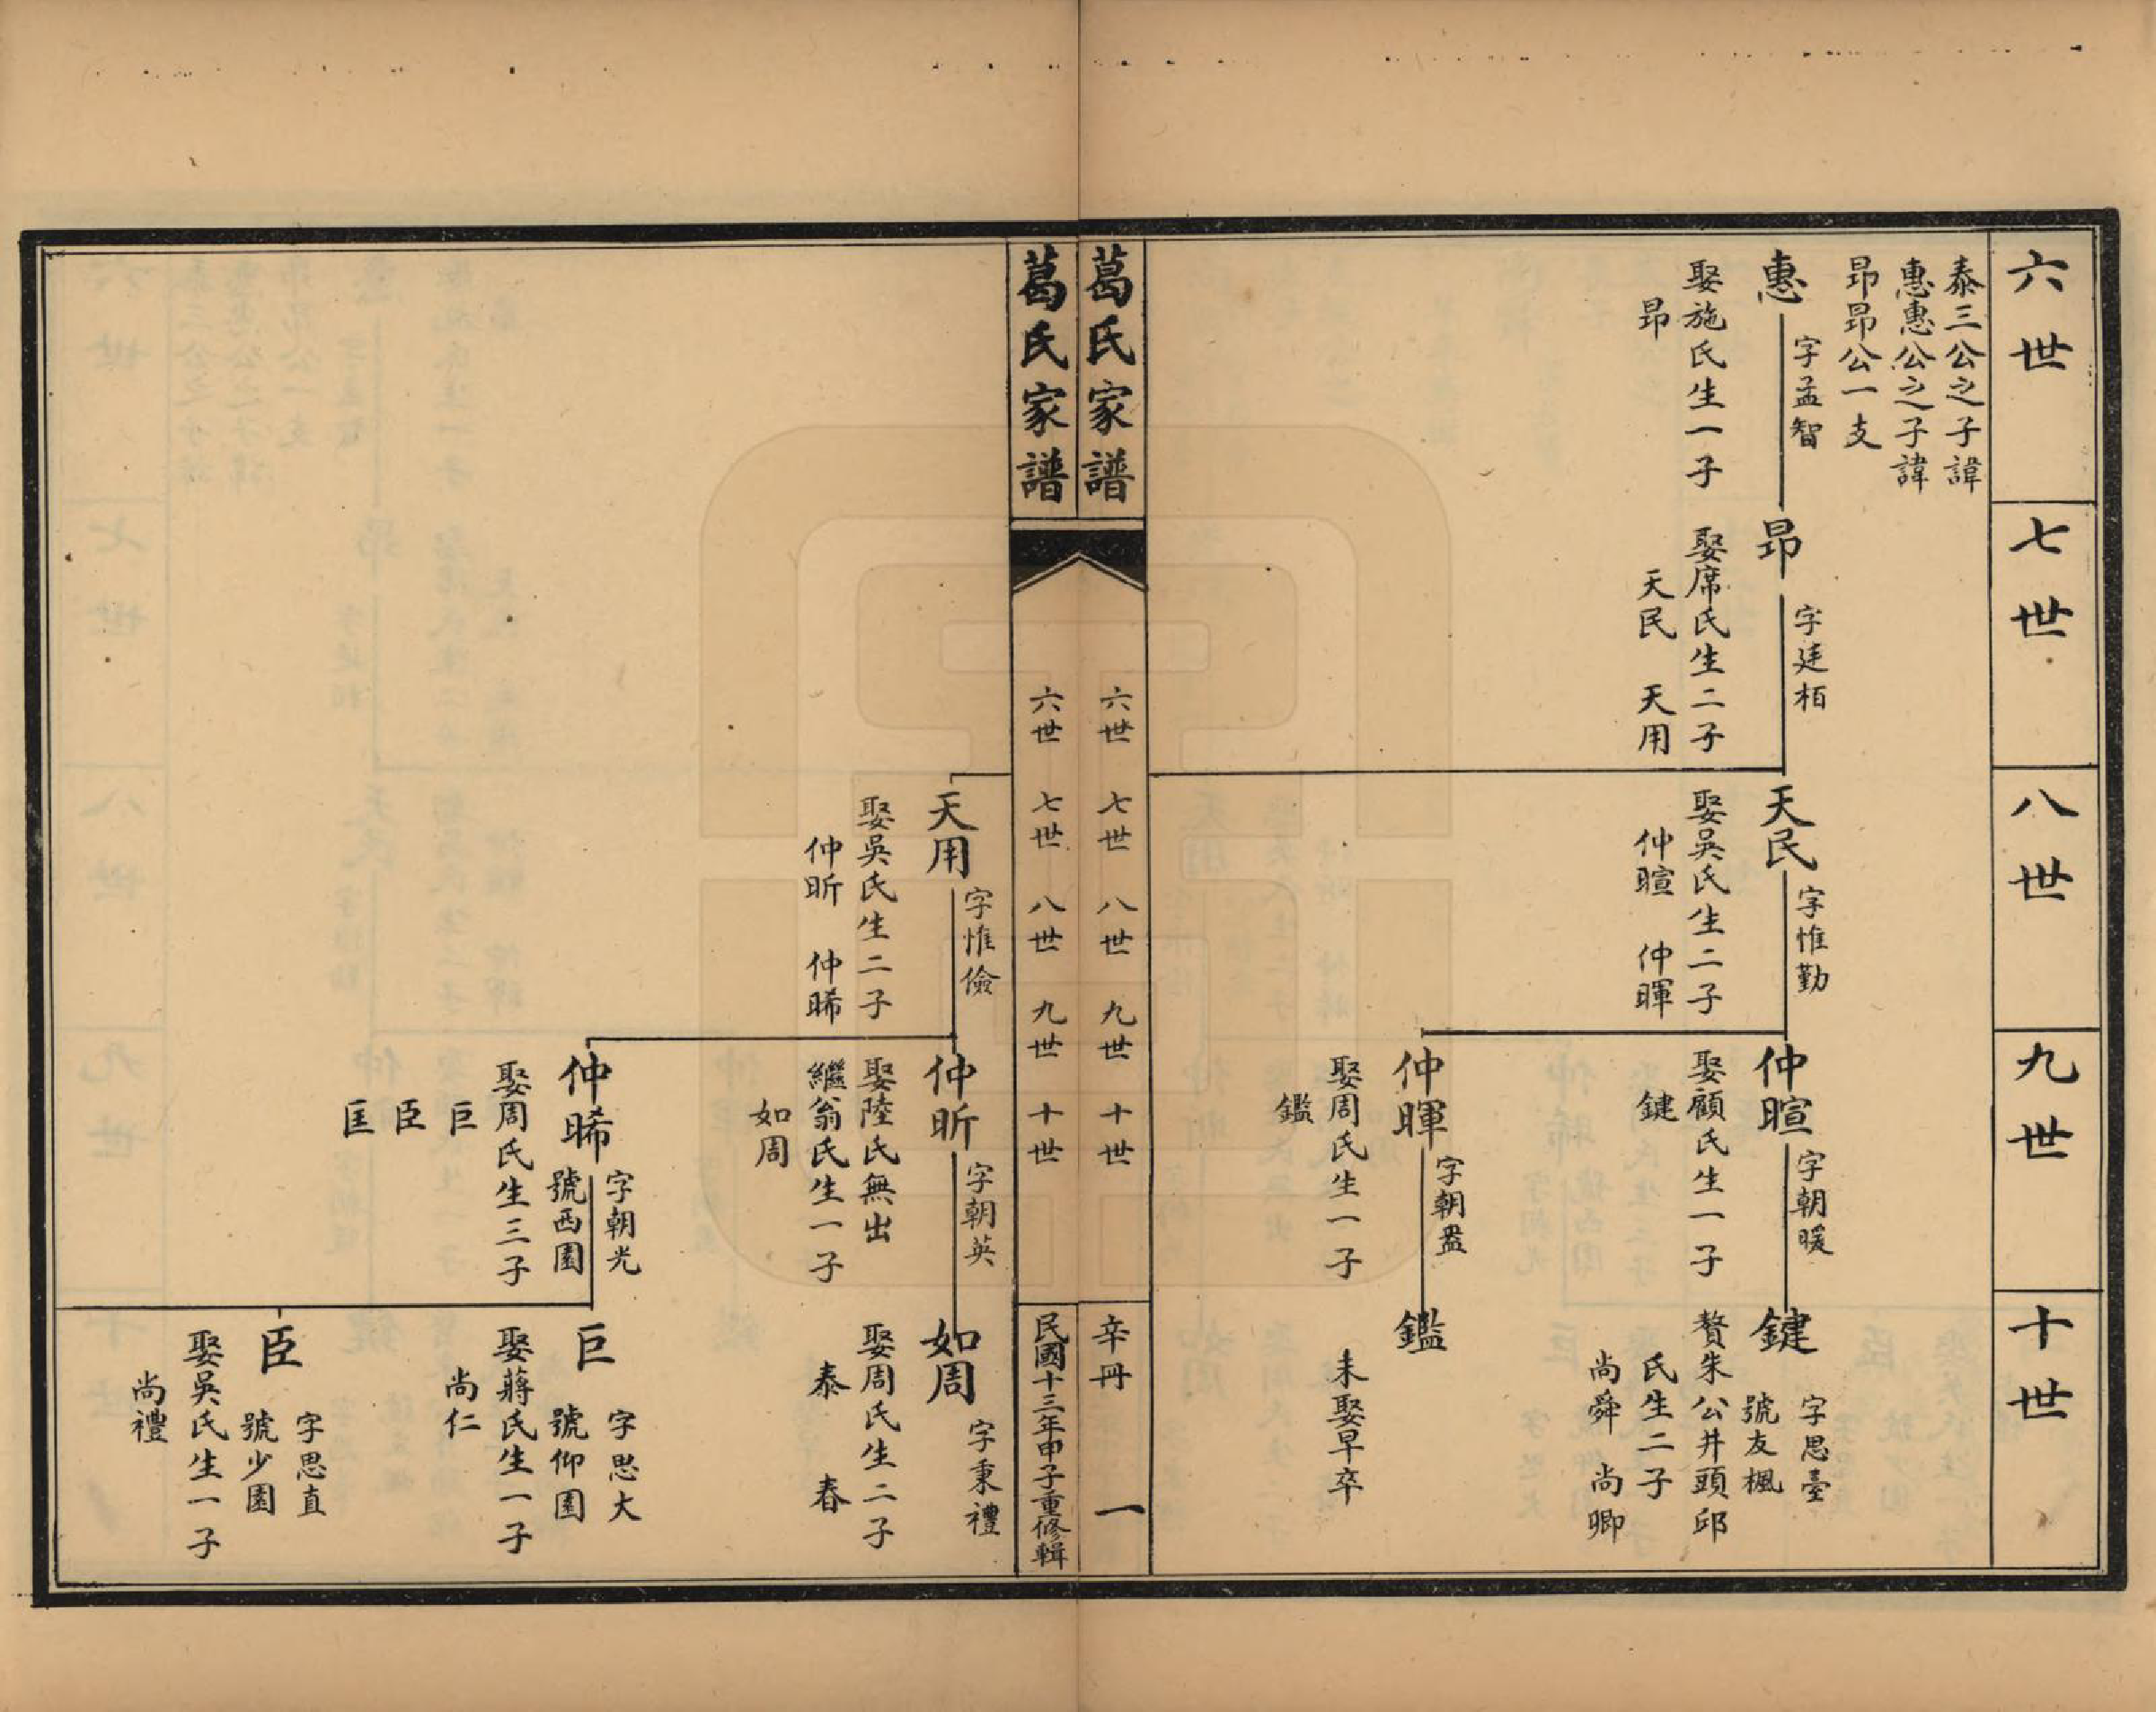 六世
七世
八世
九世
十世
泰三公之子諱
惠惠公之子諱
昂昂公一支
惠
字孟智
娶施氏生一子
昂
昂
字廷柏
娶席氏生二子
天民 天用
天民
字惟勤
娶吳氏生二子
仲暄 仲暉
仲暄
字朝暖
娶顧氏生一子
鍵
鍵
字思臺
號友楓
贅朱公井頭邱
氏生二子
尚舜 尚卿
仲暉
字朝
娶周氏生一子
鑑
鑑
未娶早卒
葛氏家譜
六世 七世 八世 九世 十世
辛冊 一
葛氏家譜
六世 七世 八世 九世 十世
民國十三年甲子重修輯
天用
字惟儉
娶吳氏生二子
仲昕 仲晞
仲昕
字朝英
娶陸氏無出
繼翁氏生一子
如周
如周
字秉禮
娶周氏生二子
泰 春
仲晞
字朝光
號西園
娶周氏生三子
巨
臣
匡
巨
字思大
號仰園
娶蔣氏生一子
尚仁
臣
字思直
號少園
娶吳氏生一子
尚禮